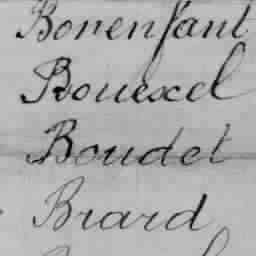 Bonenfant
Bouexel
Boudet
Brard